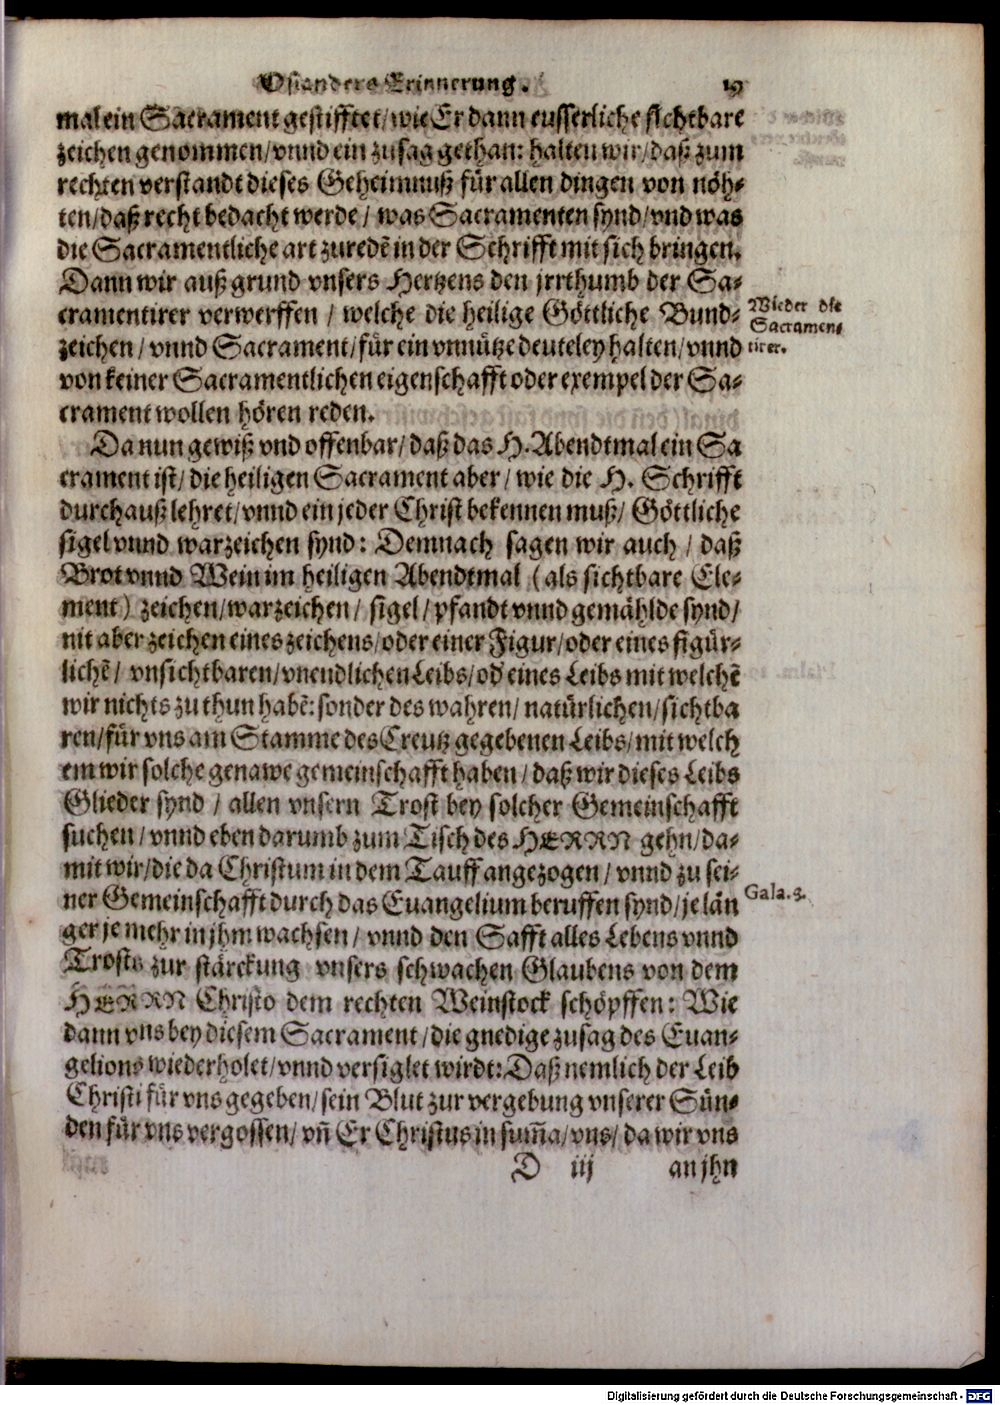 Osianders Erinnerung. 19
mal ein Sacrament gestifftet/ wie Er dann eusserliche sichtbare
zeichen genommen/ vnnd ein zusag gethan: halten wir/ daß zum
rechten verstandt dieses Geheimnuß für allen dingen von nöh-
ten/ daß recht bedacht werde/ was Sacramenten synd/ vnd was
die Sacramentliche art zuredē in der Schrifft mit sich bringen.
Dann wir auß grund vnsers Hertzens den jrrthumb der Sa-
cramentirer verwerffen / welche die heilige Göttliche Bund-
zeichen / vnnd Sacrament/ für ein vnnütze deuteley halten/ vnnd
von keiner Sacramentlichen eigenschafft oder exempel der Sa-
crament wollen hören reden.
Wieder die
Sacramen-
tirer.
Da nun gewiß vnd offenbar/ daß das H. Abendtmal ein Sa
crament ist/ die heiligen Sacrament aber/ wie die H. Schrifft
durchauß lehret/ vnnd ein jeder Christ bekennen muß/ Göttliche
sigel vnnd warzeichen synd: Demnach sagen wir auch / daß
Brot vnnd Wein im heiligen Abendtmal (als sichtbare Ele-
ment) zeichen/ warzeichen/ sigel/ pfandt vnnd gemählde synd/
nit aber zeichen eines zeichens/ oder einer Figur/ oder eines figür-
lichē/ vnsichtbaren/ vnendlichen Leibs/ od' eines Leibs mit welchē
wir nichts zu thun habē: sonder des wahren/ natürlichen/ sichtba
ren/ für vns am Stamme des Creutz gegebenen Leibs/ mit welch
em wir solche genawe gemeinschafft haben/ daß wir dieses Leibs
Glieder synd / allen vnsern Trost bey solcher Gemeinschafft
suchen/ vnnd eben darumb zum Tisch des HERRN gehn/ da-
mit wir/ die da Christum in dem Tauff angezogen/ vnnd zu sei-
ner Gemeinschafft durch das Euangelium beruffen synd/ je län
ger je mehr in jhm wachsen/ vnnd den Safft alles Lebens vnnd
Trosts zur stärckung vnsers schwachen Glaubens von dem
HERRN Christo dem rechten Weinstock schöpffen: Wie
dann vns bey diesem Sacrament/ die gnedige zusag des Euan-
gelions wiederholet/ vnnd versiglet wirdt: Daß nemlich der Leib
Christi für vns gegeben/ sein Blut zur vergebung vnserer Sün-
den für vns vergossen/ vñ Er Christus in sum̄a/ vns/ da wir vns
Gala. 3.
D iij an jhn
Digitalisierung gefördert durch die Deutsche Forschungsgemeinschaft - DFG